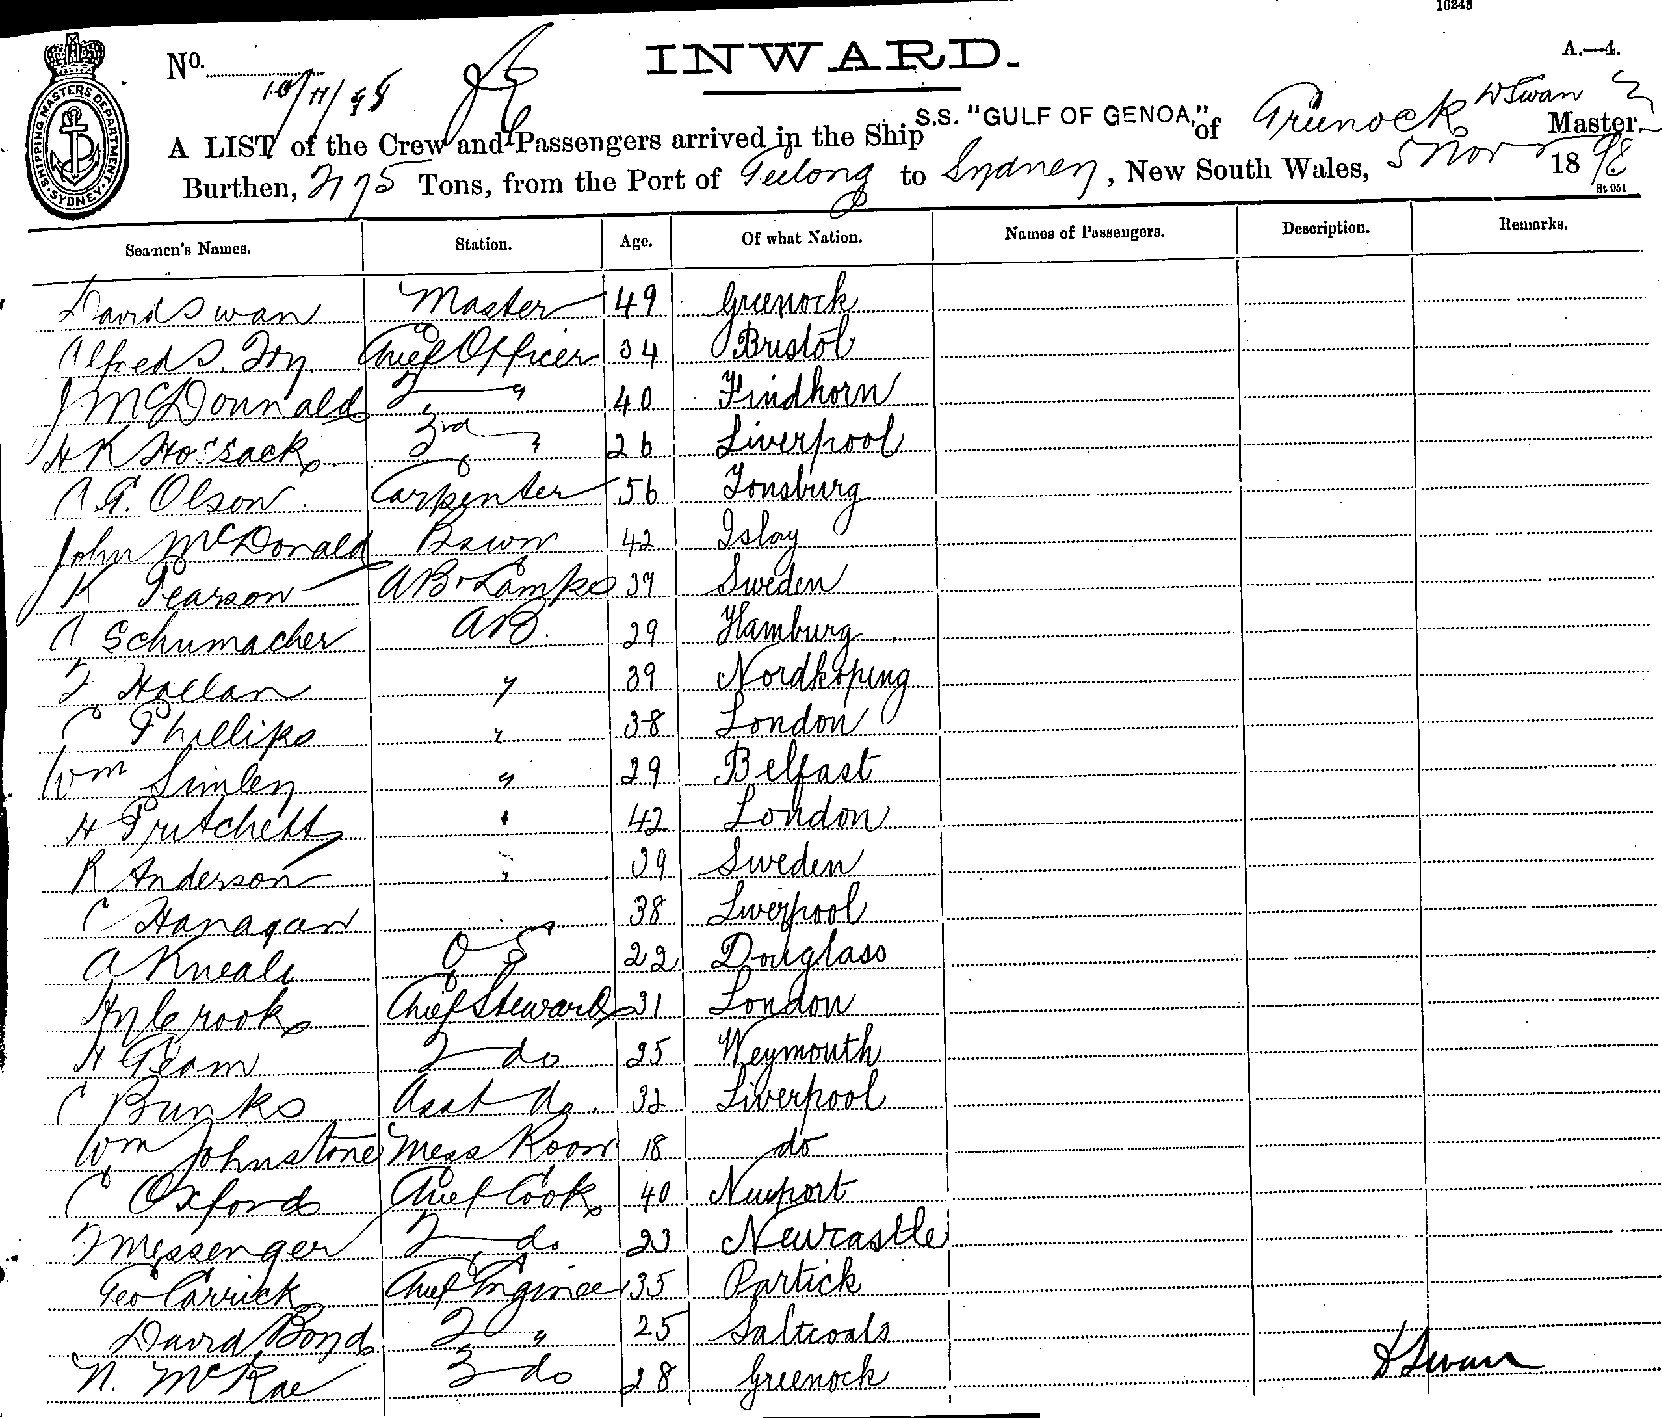 10243
No. 10/11/98
INWARD.
A.—4.
SHIPPING MASTERS DEPARTMENT SYDNEY
A LIST of the Crew and Passengers arrived in the Ship S.S. "GULF OF GENOA," of Greenock D Swan Master
Burthen, Tons, from the Port of Geelong to Sydney, New South Wales, 5 Nov 1898
Seamen's Names. Station. Age. Of what Nation. Names of Passengers. Description. Remarks.
David Swan Master 49 Greenock
Alfred S. Foy Chief Officer 34 Bristol
J McDonnald 2 " 40 Findhorn
H K Hossack 3rd " 26 Liverpool
A. Olson Carpenter 56 Tonsburg
John McDonald Bswn 42 Islay
K Pearson AB & Lamps 39 Sweden
C Schumacher AB. 29 Hamburg
F Hallan " 39 Nordkoping
C Phillips " 38 London
Wm Simley " 29 Belfast
H Pritchett " 42 London
R Anderson " 39 Sweden
C Hanagan 38 Liverpool
A Kneale O S 22 Douglass
Hy Crooks Chief Steward 31 London
H Geam 2 do 25 Weymouth
C Bunks Asst do. 32 Liverpool
Wm Johnstone Mess Room 18 do
C Oxford Chief Cook 40 Newport
F Messenger 2 do 23 Newcastle
Geo Carrick Chief Enginee 35 Partick
David Boyd 2 " 25 Saltcoats
N. McRae 3 do 28 Greenock
D Swan